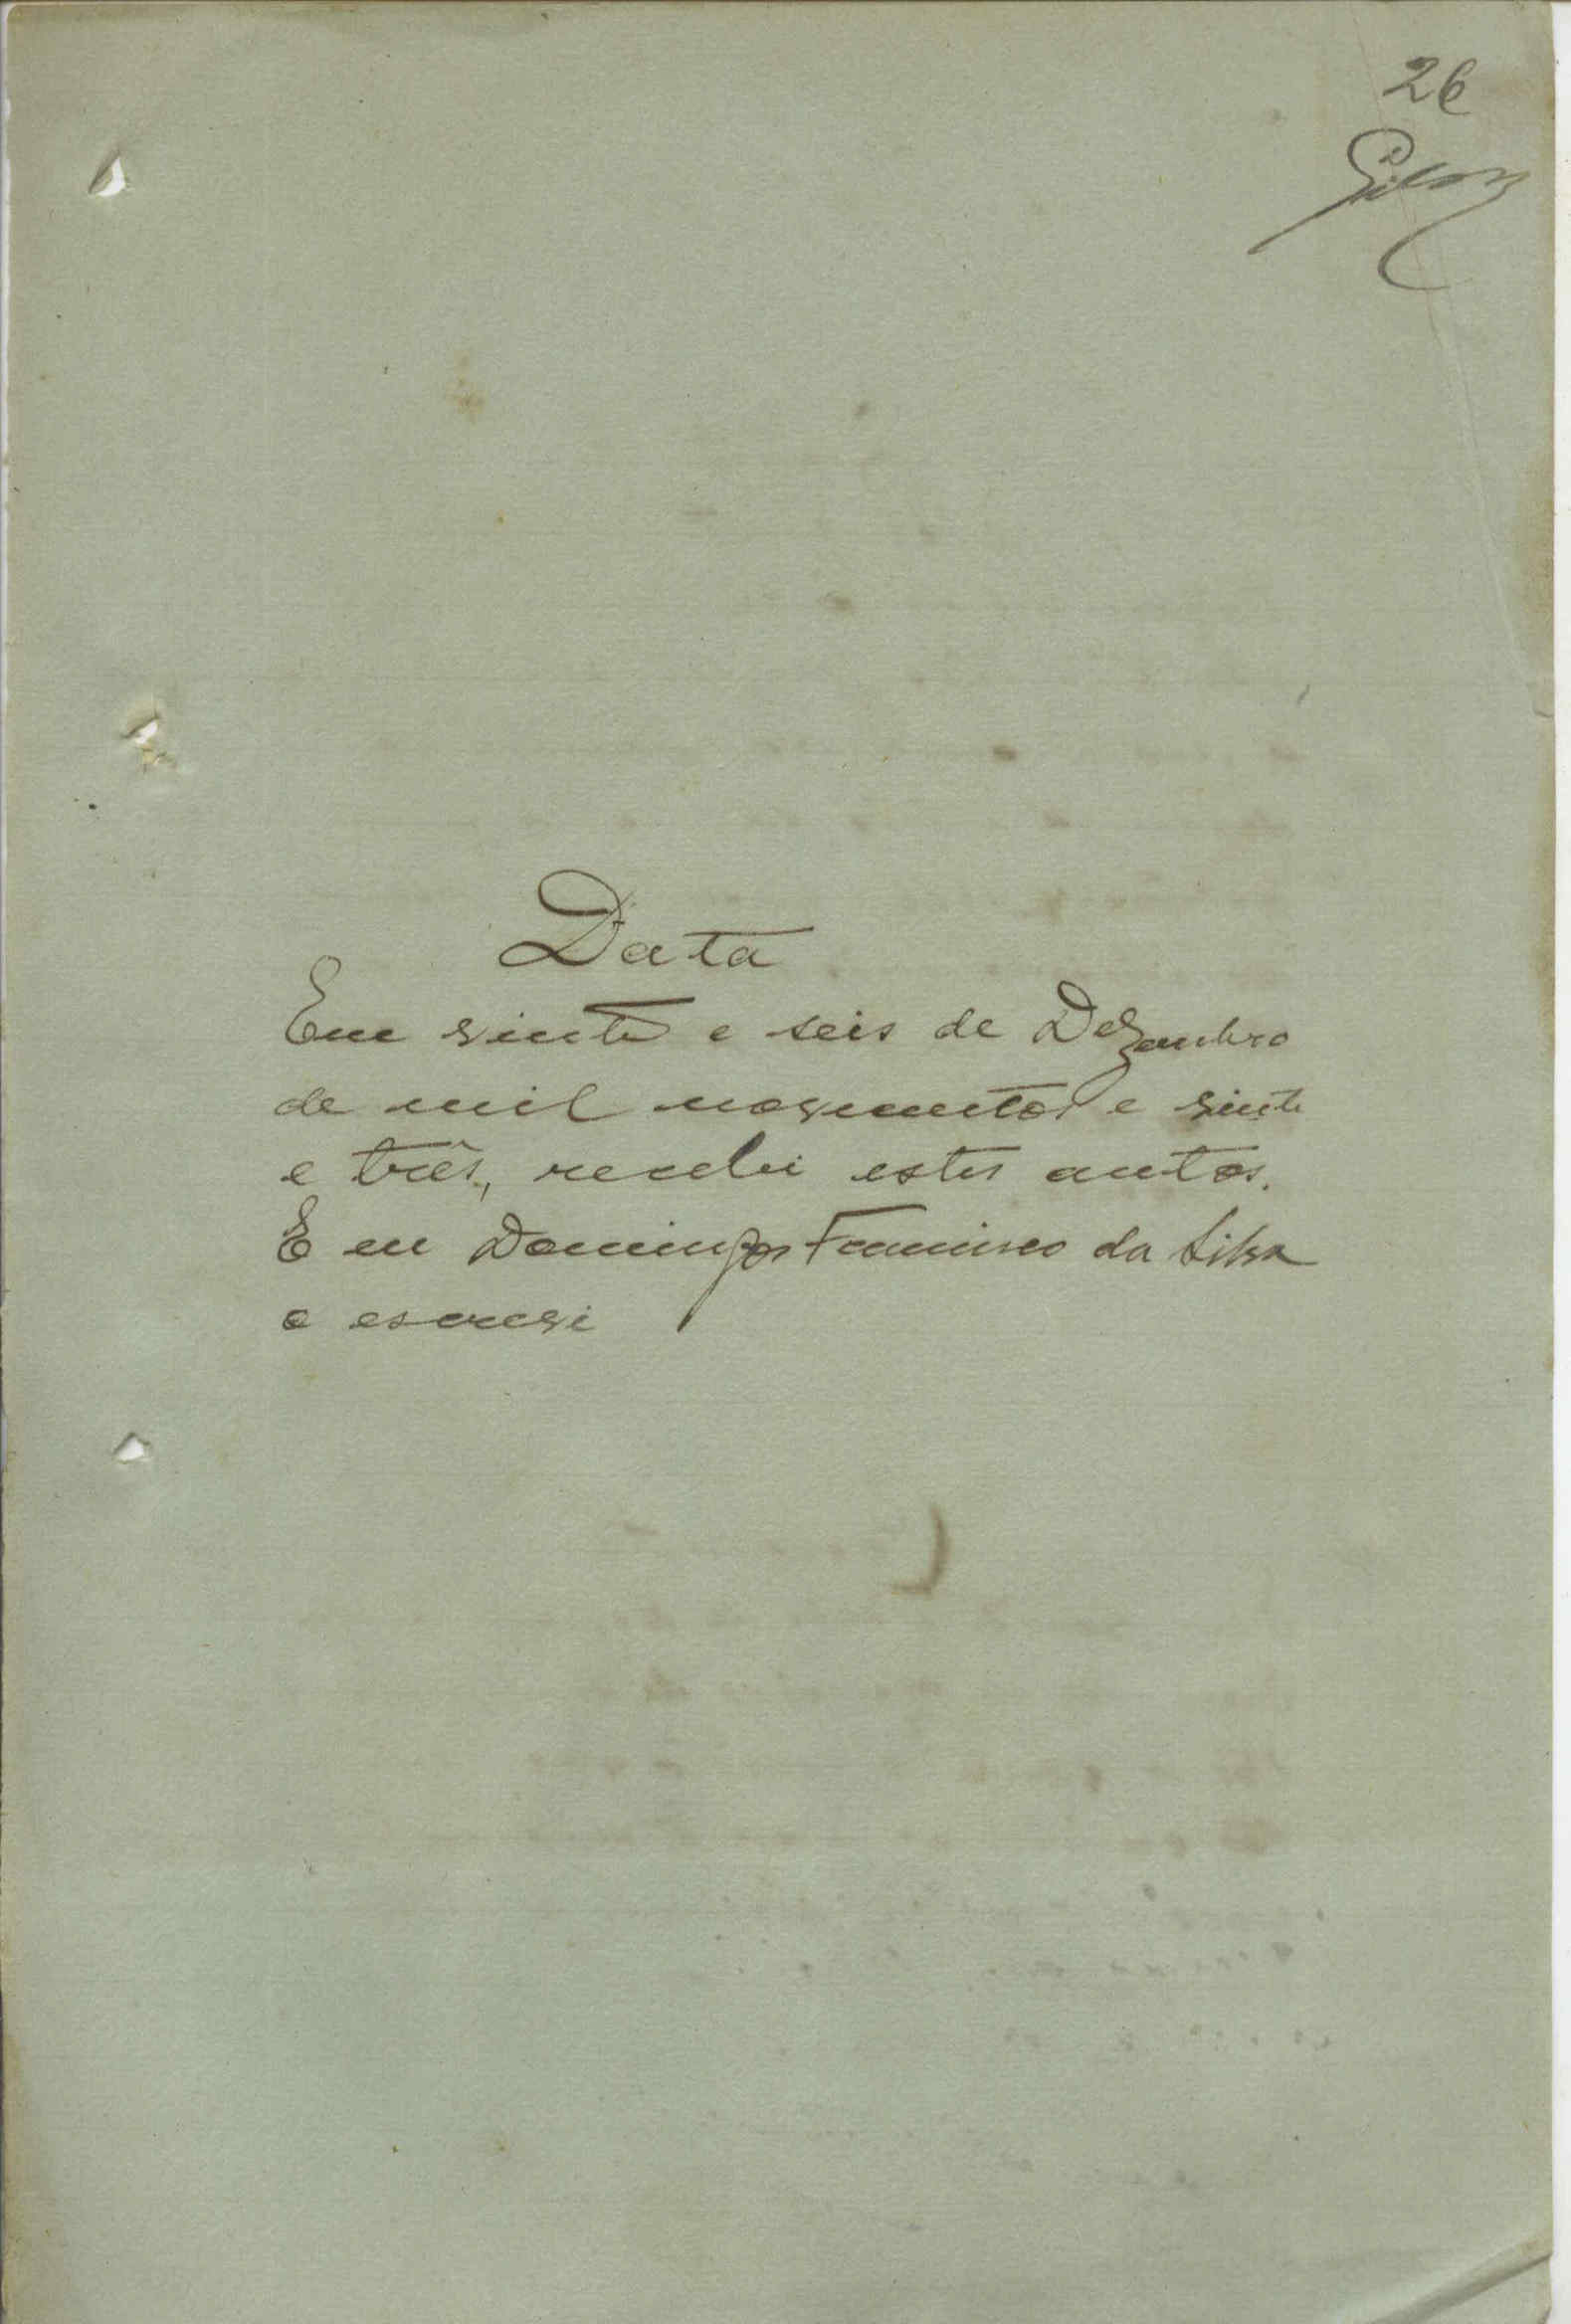 26
Silva
Data
Em vinte e seis de Dezembro
de mil novecentos e vinte
e três, recebi estes autos.
E eu Domingos Francisco da Silva
o escrevi